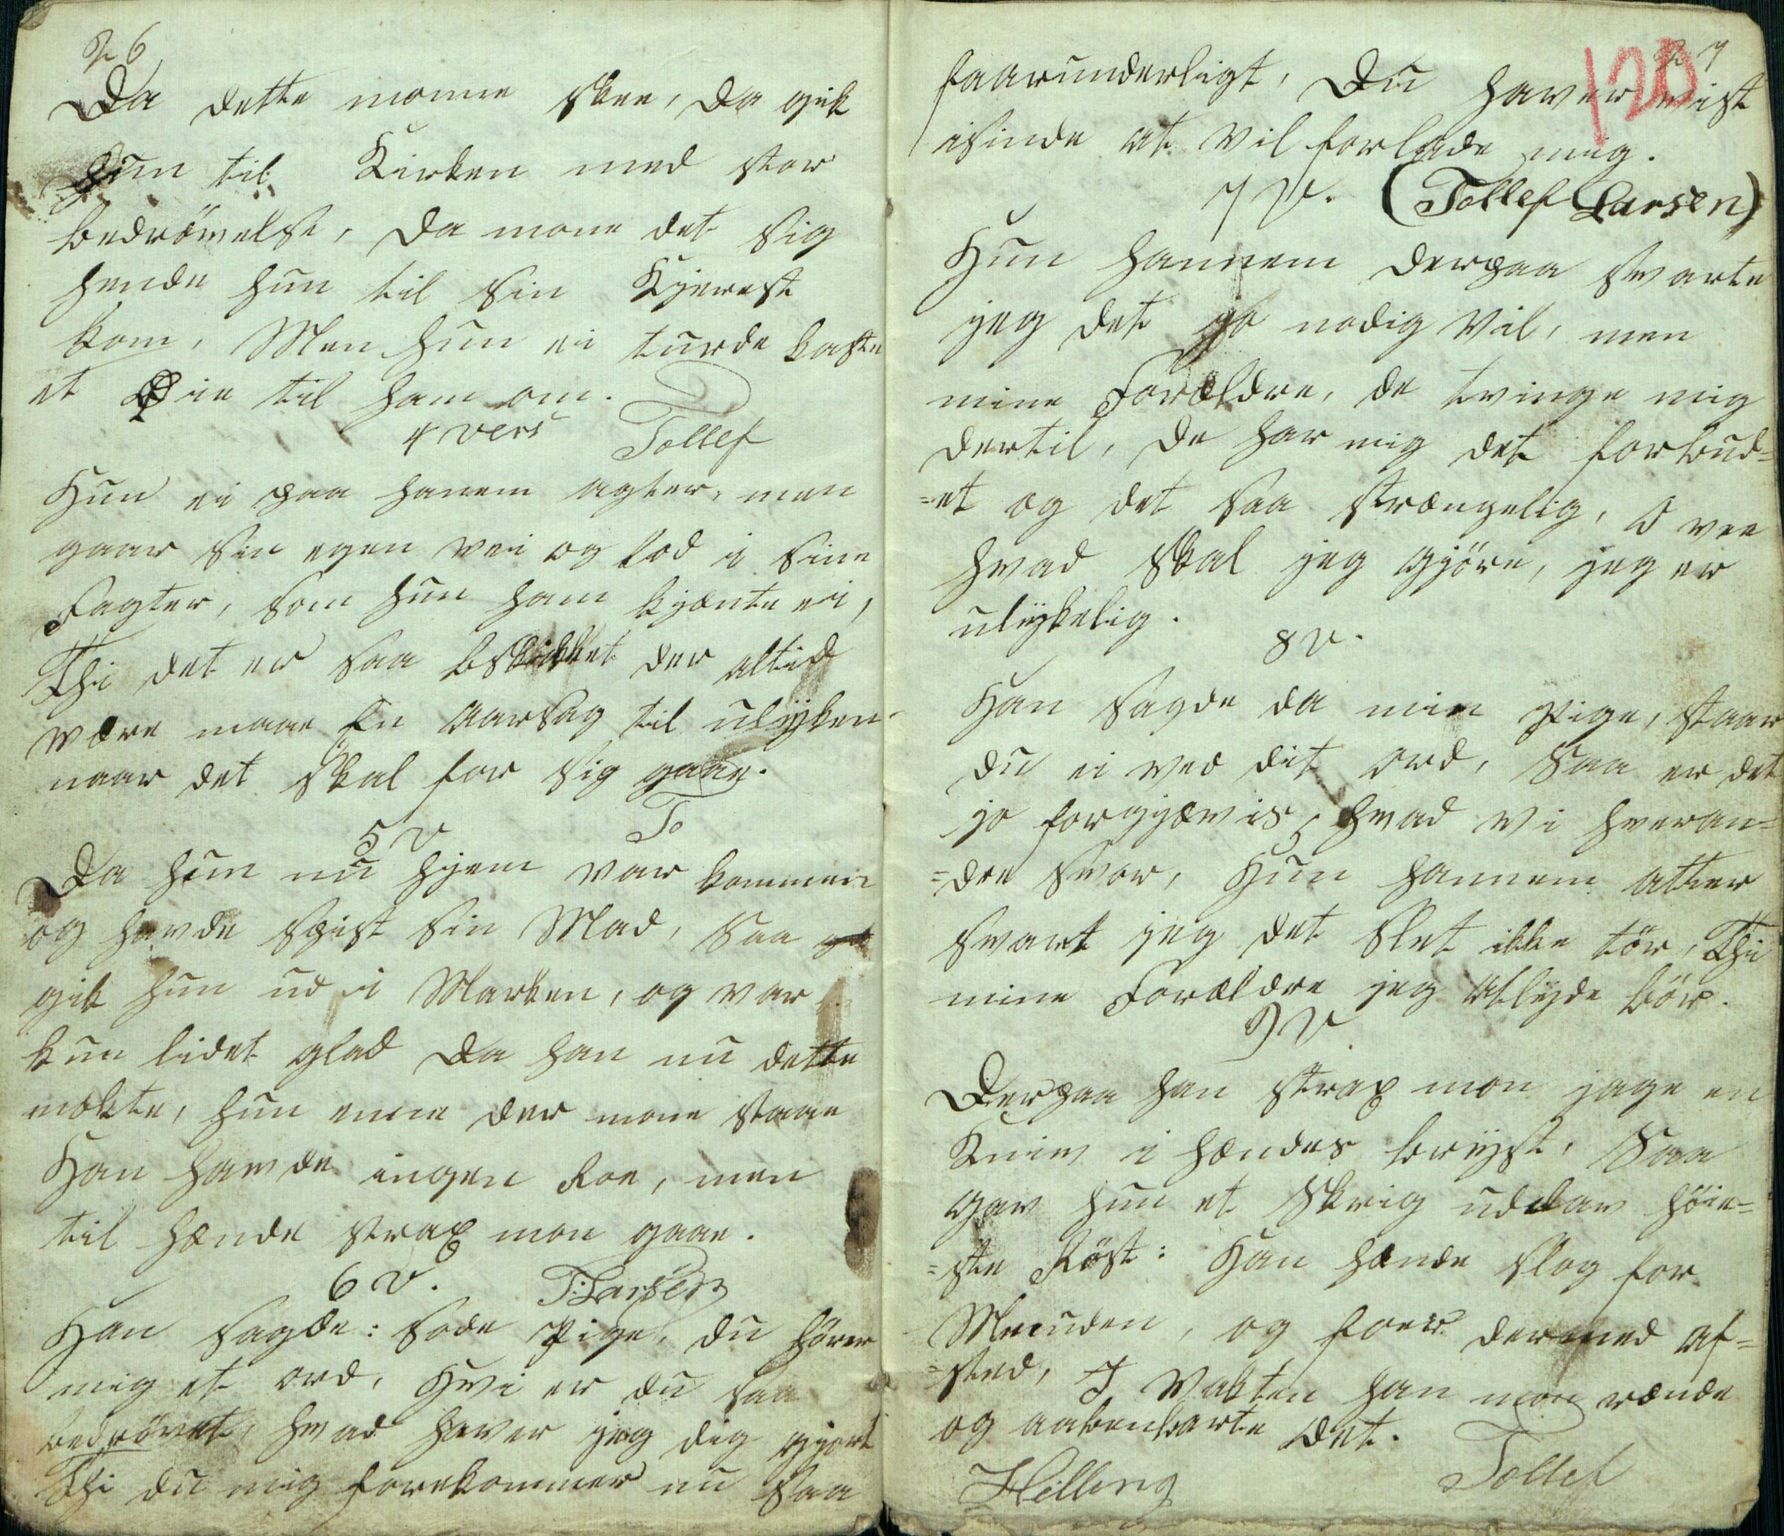 P 6
Da dette monne skee, da gik
Hun til Kirken med stor
bedrövelse, da mone det sig
hende hun til sin Kjereste
kom, Men hun ei turde kaste
et Öie til ham om.
4 vers Tollef
Hun ei paa hanem agter, men
gaar sin egen vei og lod i sine
Fagter, som hun ham kjænte ei,
Thi det er saa bskikket der altid
være maae En Aarsag til ulÿken
naar det skal for sig gaae.
5 V To
Da hun nu hjem var kommen
og havde spist sin Mad, saa
gik hun ud i Marken, og var
kun lidet glad Da han nu dette
mækte, hun ene der mone staae
Han havde ingen Roe, men
til hænde strax mon gaae.
6 V. T. Larsen
Han sagde: søde Pige, du hörer
mig et ord, Hvi er du saa
bedrövet, hvad haver jeg dig gjort
Thi du mig forekommer nu saa
P 7
120
faarunderligt, Du haver vist
isinde at vil forlade mig.
7 V. (Tollef Larsen)
Hun hannem derpaa svarte
jeg det jo nodig vil, men
mine Forældre, de tvinge mig
dertil, De har mig det forbud=
=et og det saa strængelig, O vee
hvad skal jeg gjöre, jeg er
ulÿkelig.
8 V.
Han sagde da min Pige, staar
du ei ved dit ord, saa er det
jo forgjævis, hvad vi hveran=
=dre svor, Hun hannem atter
svart jeg det slet ikke tör, Thi
mine Forældre jeg atlÿde bör.
9 V
Derpaa han strax mon jage en
Kniv i hændes brÿst, Saa
gav hun et Skrig ud av höie=
=ste Röst: Han hænde slog for
Munden, og foer dermed af=
=sted, I Vakten han mon rænde
og aabenbarte det.
Helling Tollef